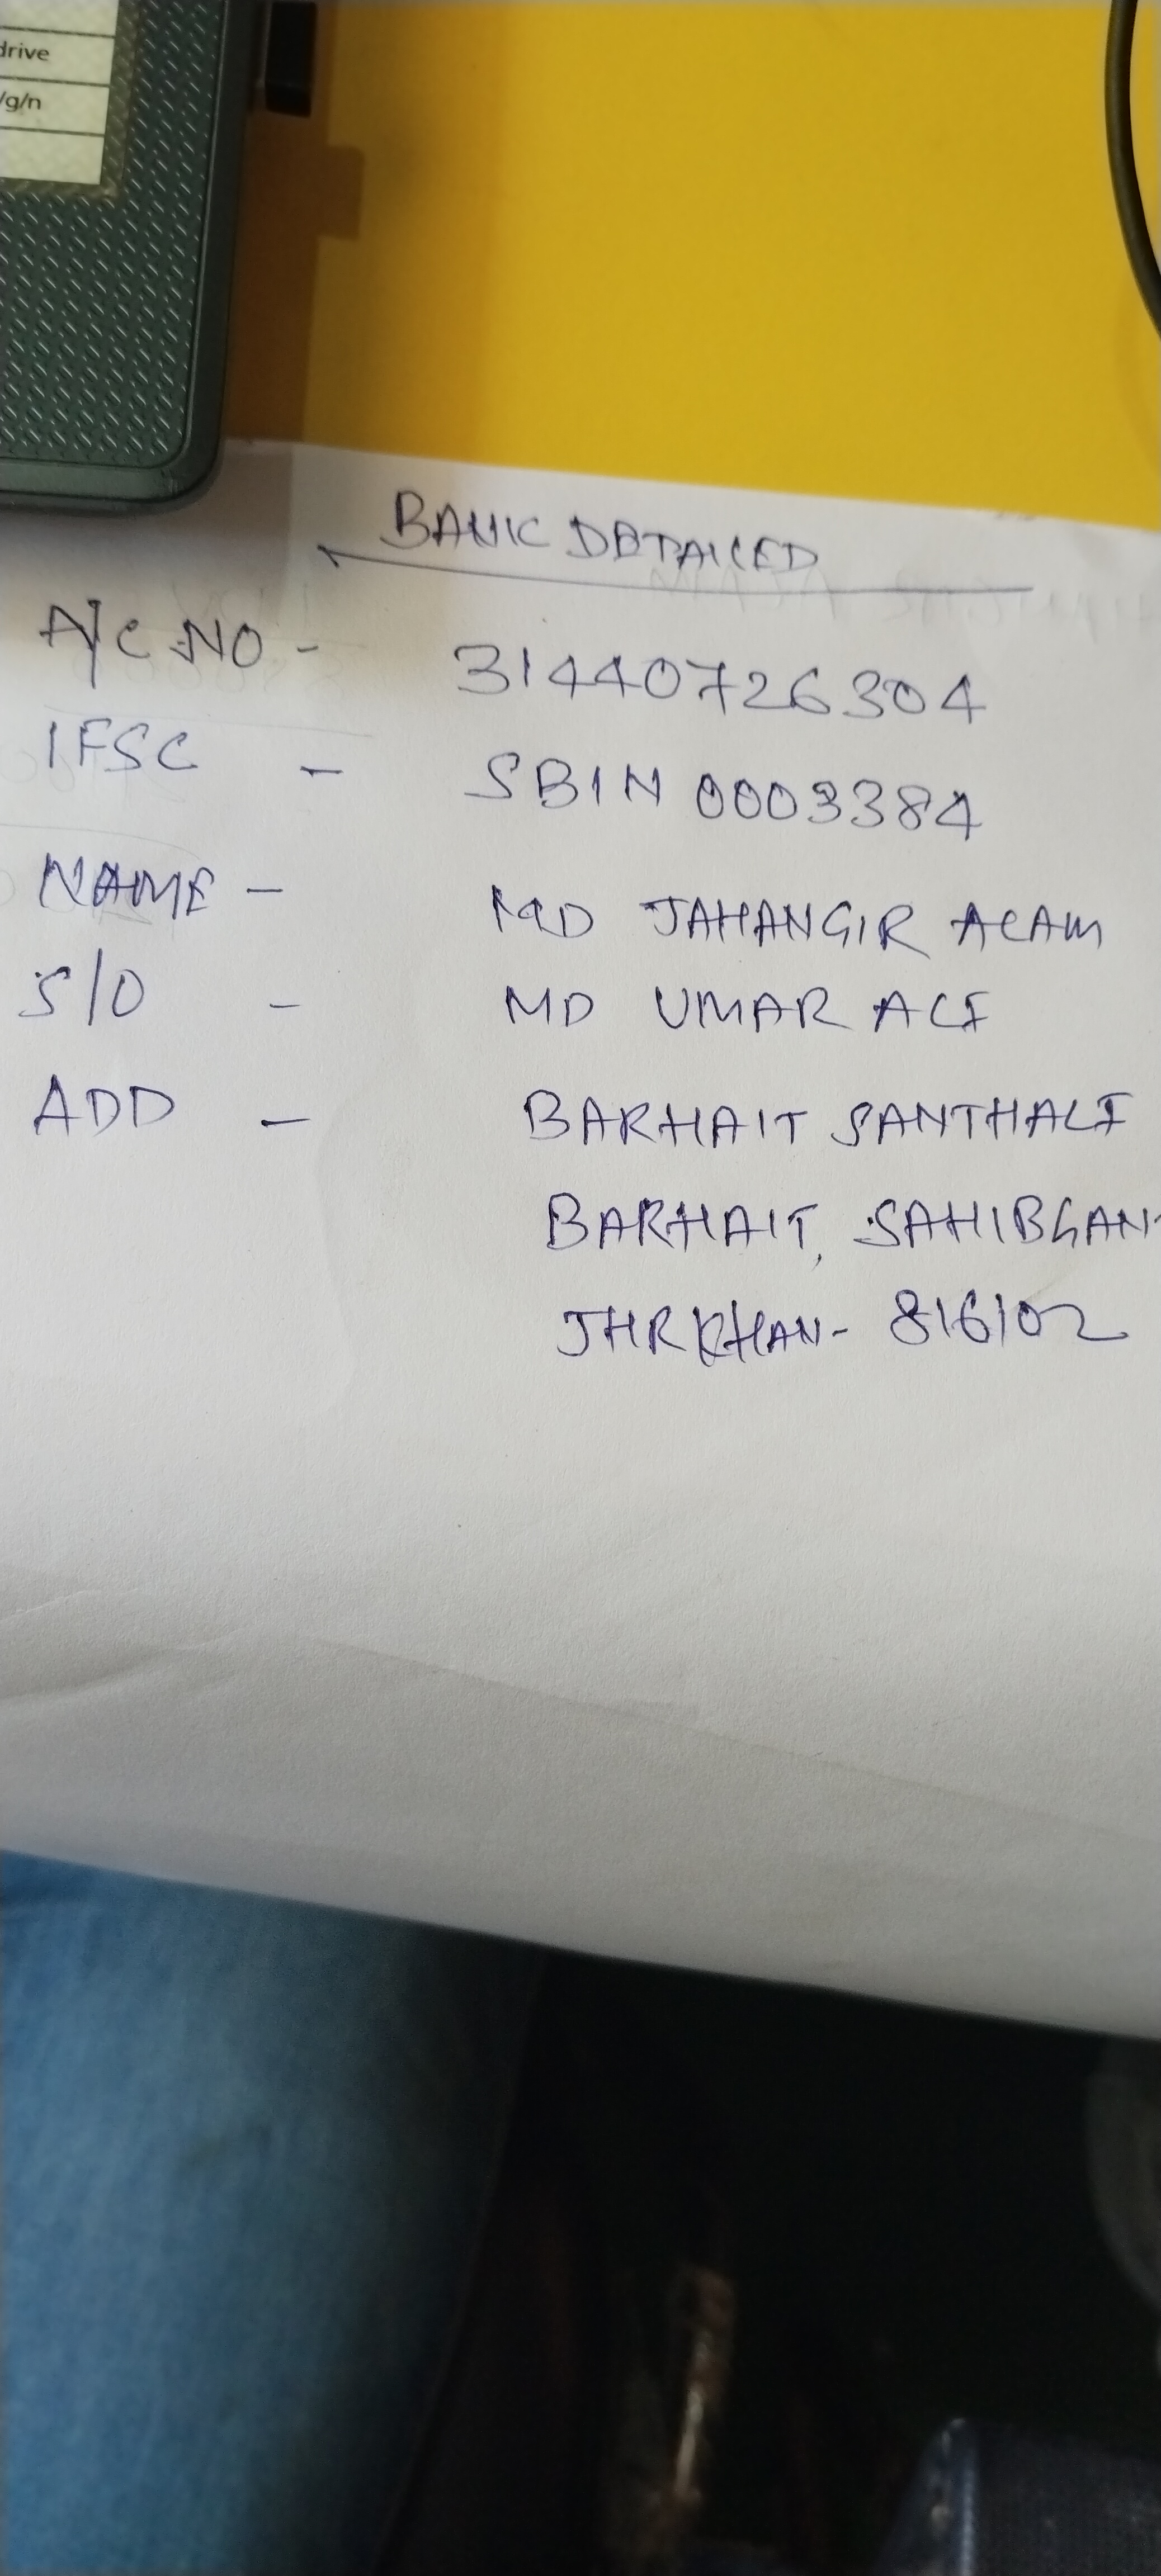 drive
/g/n
BANK DETAILED
A/C NO - 31440726304
IFSC - SBIN 0003384
NAME - MD JAHANGIR ALAM
S/O - MD UMAR ALI
ADD - BARHAIT SANTHALI
BARHAIT, SAHIBGAN
JHRKHAN - 816102